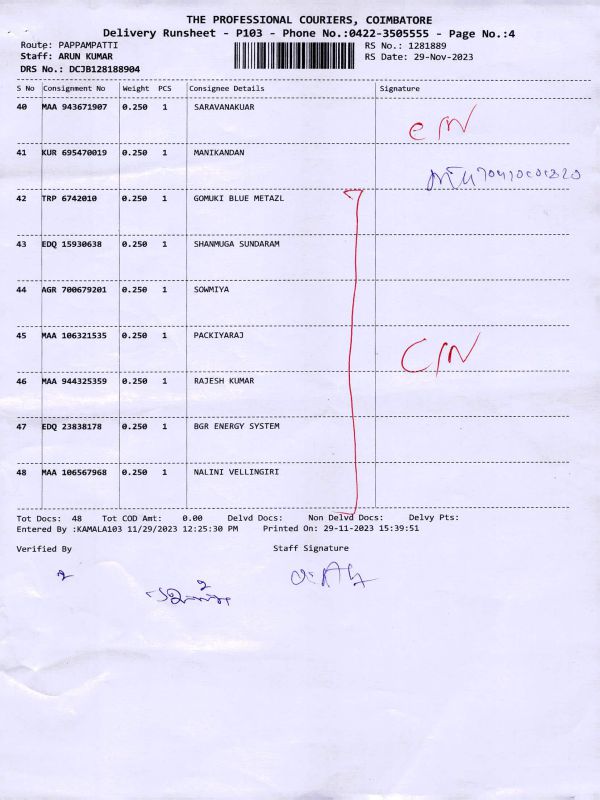 THE PROFESSIONAL COURIERS, COIMBATORE
Delivery Runsheet - P103 - Phone No.:0422-3505555 - Page No.:4
Route: PAPPAMPATTI RS No.: 1281889
Staff: ARUN KUMAR RS Date: 29-Nov-2023
DRS No.: DCJB128188904
S No Consignment No Weight PCS Consignee Details Signature
40 MAA 943671907 0.250 1 SARAVANAKUAR
41 KUR 695470019 0.250 1 MANIKANDAN
42 TRP 6742010 0.250 1 GOMUKI BLUE METAZL
43 EDQ 15930638 0.250 1 SHANMUGA SUNDARAM
44 AGR 700679201 0.250 1 SOWMIYA
45 MAA 106321535 0.250 1 PACKIYARAJ
C/N
46 MAA 944325359 0.250 1 RAJESH KUMAR
47 EDQ 23838178 0.250 1 BGR ENERGY SYSTEM
48 MAA 106567968 0.250 1 NALINI VELLINGIRI
Tot Docs: 48 Tot COD Amt: 0.00 Delvd Docs: Non Delvd Docs: Delvy Pts:
Entered By :KAMALA103 11/29/2023 12:25:30 PM Printed On: 29-11-2023 15:39:51
Verified By Staff Signature